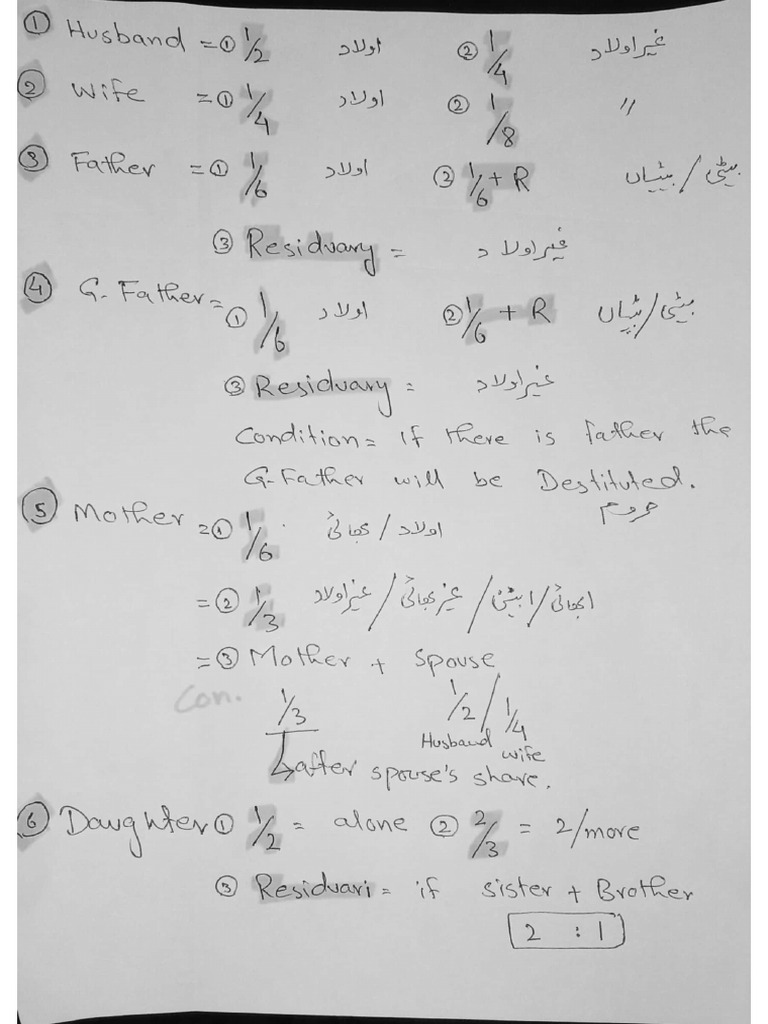 ① Husband = ① 1/2 اولاد ② 1/4 غیر اولاد
② Wife = ① 1/4 اولاد ② 1/8 "
③ Father = ① 1/6 اولاد ② 1/6 + R بیٹی / بیٹیاں
③ Residuary = غیر اولاد
④ G. Father = ① 1/6 اولاد ② 1/6 + R بیٹی/بیٹیاں
③ Residuary = غیر اولاد
Condition = if there is father the
G-Father will be Destituted.
⑤ Mother = ① 1/6 اولاد / بھائی
= ② 1/3 غیر اولاد / غیر بھائی /
= ③ Mother + Spouse
Con. 1/3 1/2 / 1/4
Husband wife
after spouse's share.
⑥ Daughter ① 1/2 = alone ② 2/3 = 2/more
③ Residuari = if sister + Brother
2 : 1